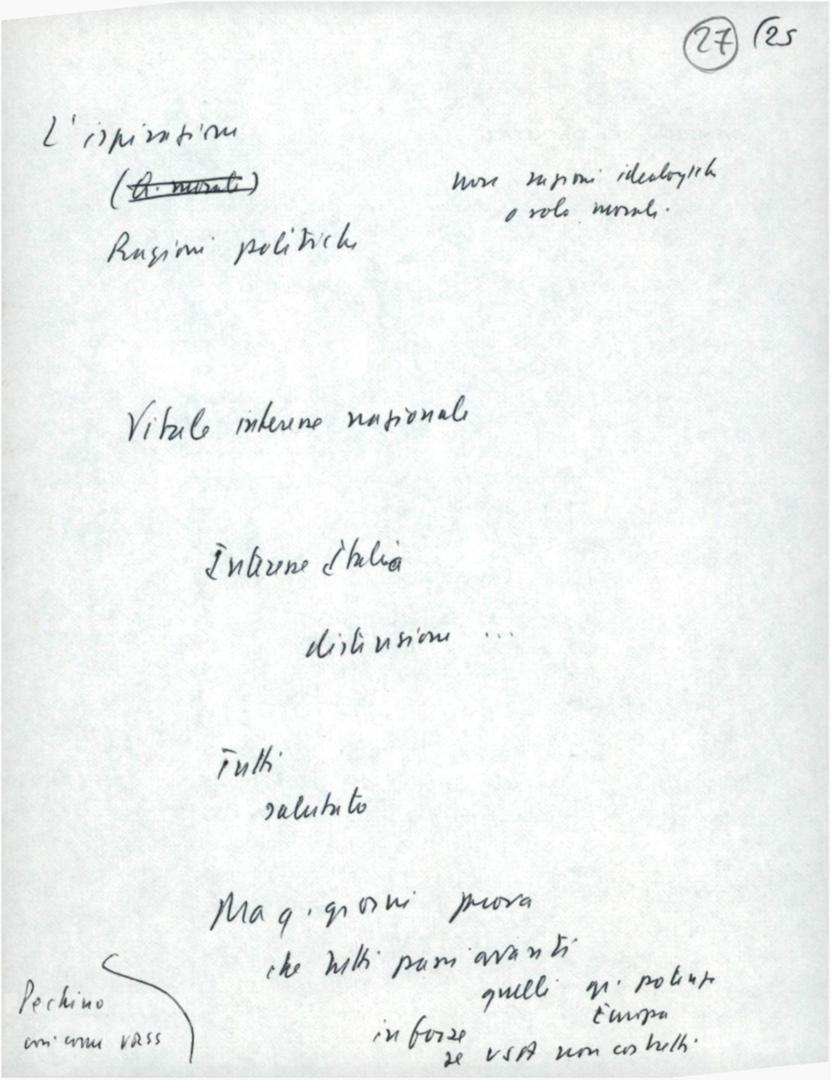 27 (25
L'ispirazione
(R. morali)
non ragioni ideologiche
o solo morali.
Ragioni politiche
Vitale interesse nazionale
Interesse Italia
distensione ...
Tutti
salutato
Ma q. giorni prova
che tutti passi avanti
quelli gr. potenze
Europa
in forse
se USA non costretti
Pechino
così come URSS